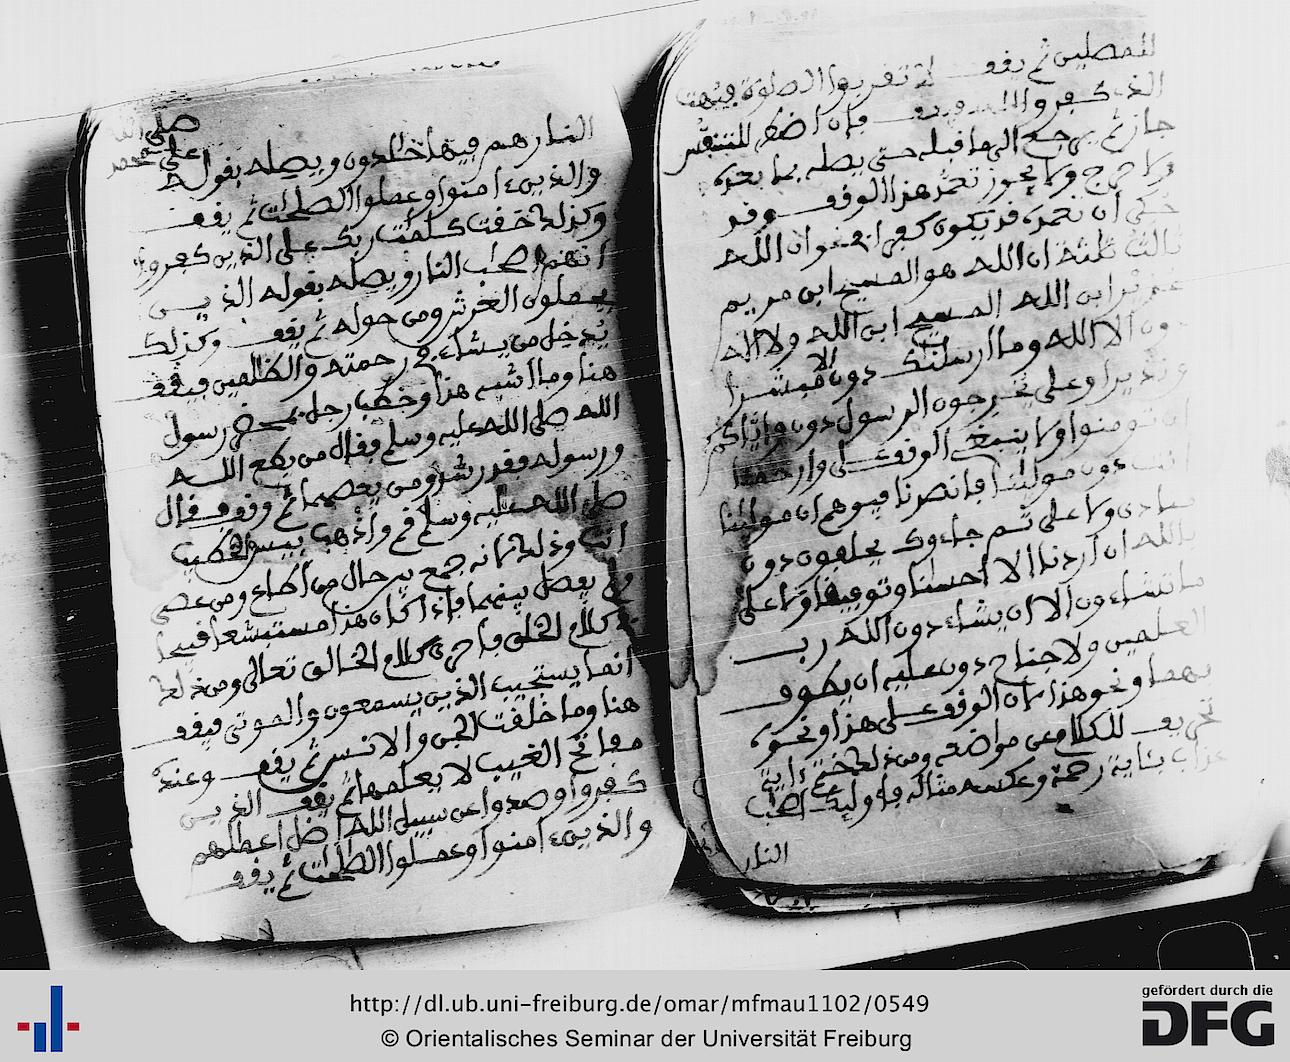 للمصلين ثم يقف لا تقربوا الصلوة فبهت
الذي كفر والله ويقف فإن اضطر للتنفس
جاز ثم يرجع الى ما قبله حتى يصله بما بعده
ولا حرج ولا يجوز تعمد هذا الوقوف وقد
أن تعمده قد يكون كفرا نحو ان الله
ثالث ثلثة ان الله هو المسيح ابن مريم
عزير ابن الله المسيح ابن الله ولا اله
دون الا الله وما ارسلنك دون الا مبشرا
ونذيرا وعلى يخرجون الرسول دون واياكم
ان تومنوا ولا ينبغي الوقف على وارحمنا
انت دون مولينا فانصرنا
ولا على ثم جاءوك يحلفون دون
بالله ان اردنا الا احسنا وتوفيقا ولا على
ما تشاءون الا ان يشاء دون الله رب
العلمين ولا جناح دون عليه ان يطوف
بهما ونحو هذا لان الوقف على هذا ونحوه
للكلام عن مواضعه ومن ذلك ختم ءاية
عذاب بئاية رحمة وعكسه مثاله فاوليك اصحب
النار
النار هم فيها خلدون ويصله بقوله
صلى الله
على محمد
والذين ءامنوا وعملوا الصلحت ثم يقف
وكذلك حقت كلمت ربك على الذين كفروا
انهم اصحب النار ويصله بقوله الذين
يحملون العرش ومن حوله ثم يقف وكذلك
يدخل من يشاء في رحمته والظلمين ويقف
هنا وما اشبه هذا وخطب رجل رسول
الله صلى الله عليه وسلم فقال من يطع الله
ورسوله فقد رشد ومن يعصهما ثم وقف فقال
صلى الله عليه وسلم قم واذهب بيس الخطيب
انت وذلك لانه جمع بين حال من اطاع ومن عصى
ولم يفصل بينهما فاذا كان هذا مستبشعا
كلام الخلق فاحرى كلام الخالق تعالى ومن ذلك
انما يستجيب الذين يسمعون والموتى ويقف
هنا وما خلقت الجن والانس ثم يقف وعنده
مفاتح الغيب لا يعلمها ثم يقف الذين
كفروا وصدوا عن سبيل الله اضل اعملهم
والذين ءامنوا وعملوا الصلحت ثم يقف
http://dl.ub.uni-freiburg.de/omar/mfmau1102/0549
© Orientalisches Seminar der Universität Freiburg
gefördert durch die
DFG